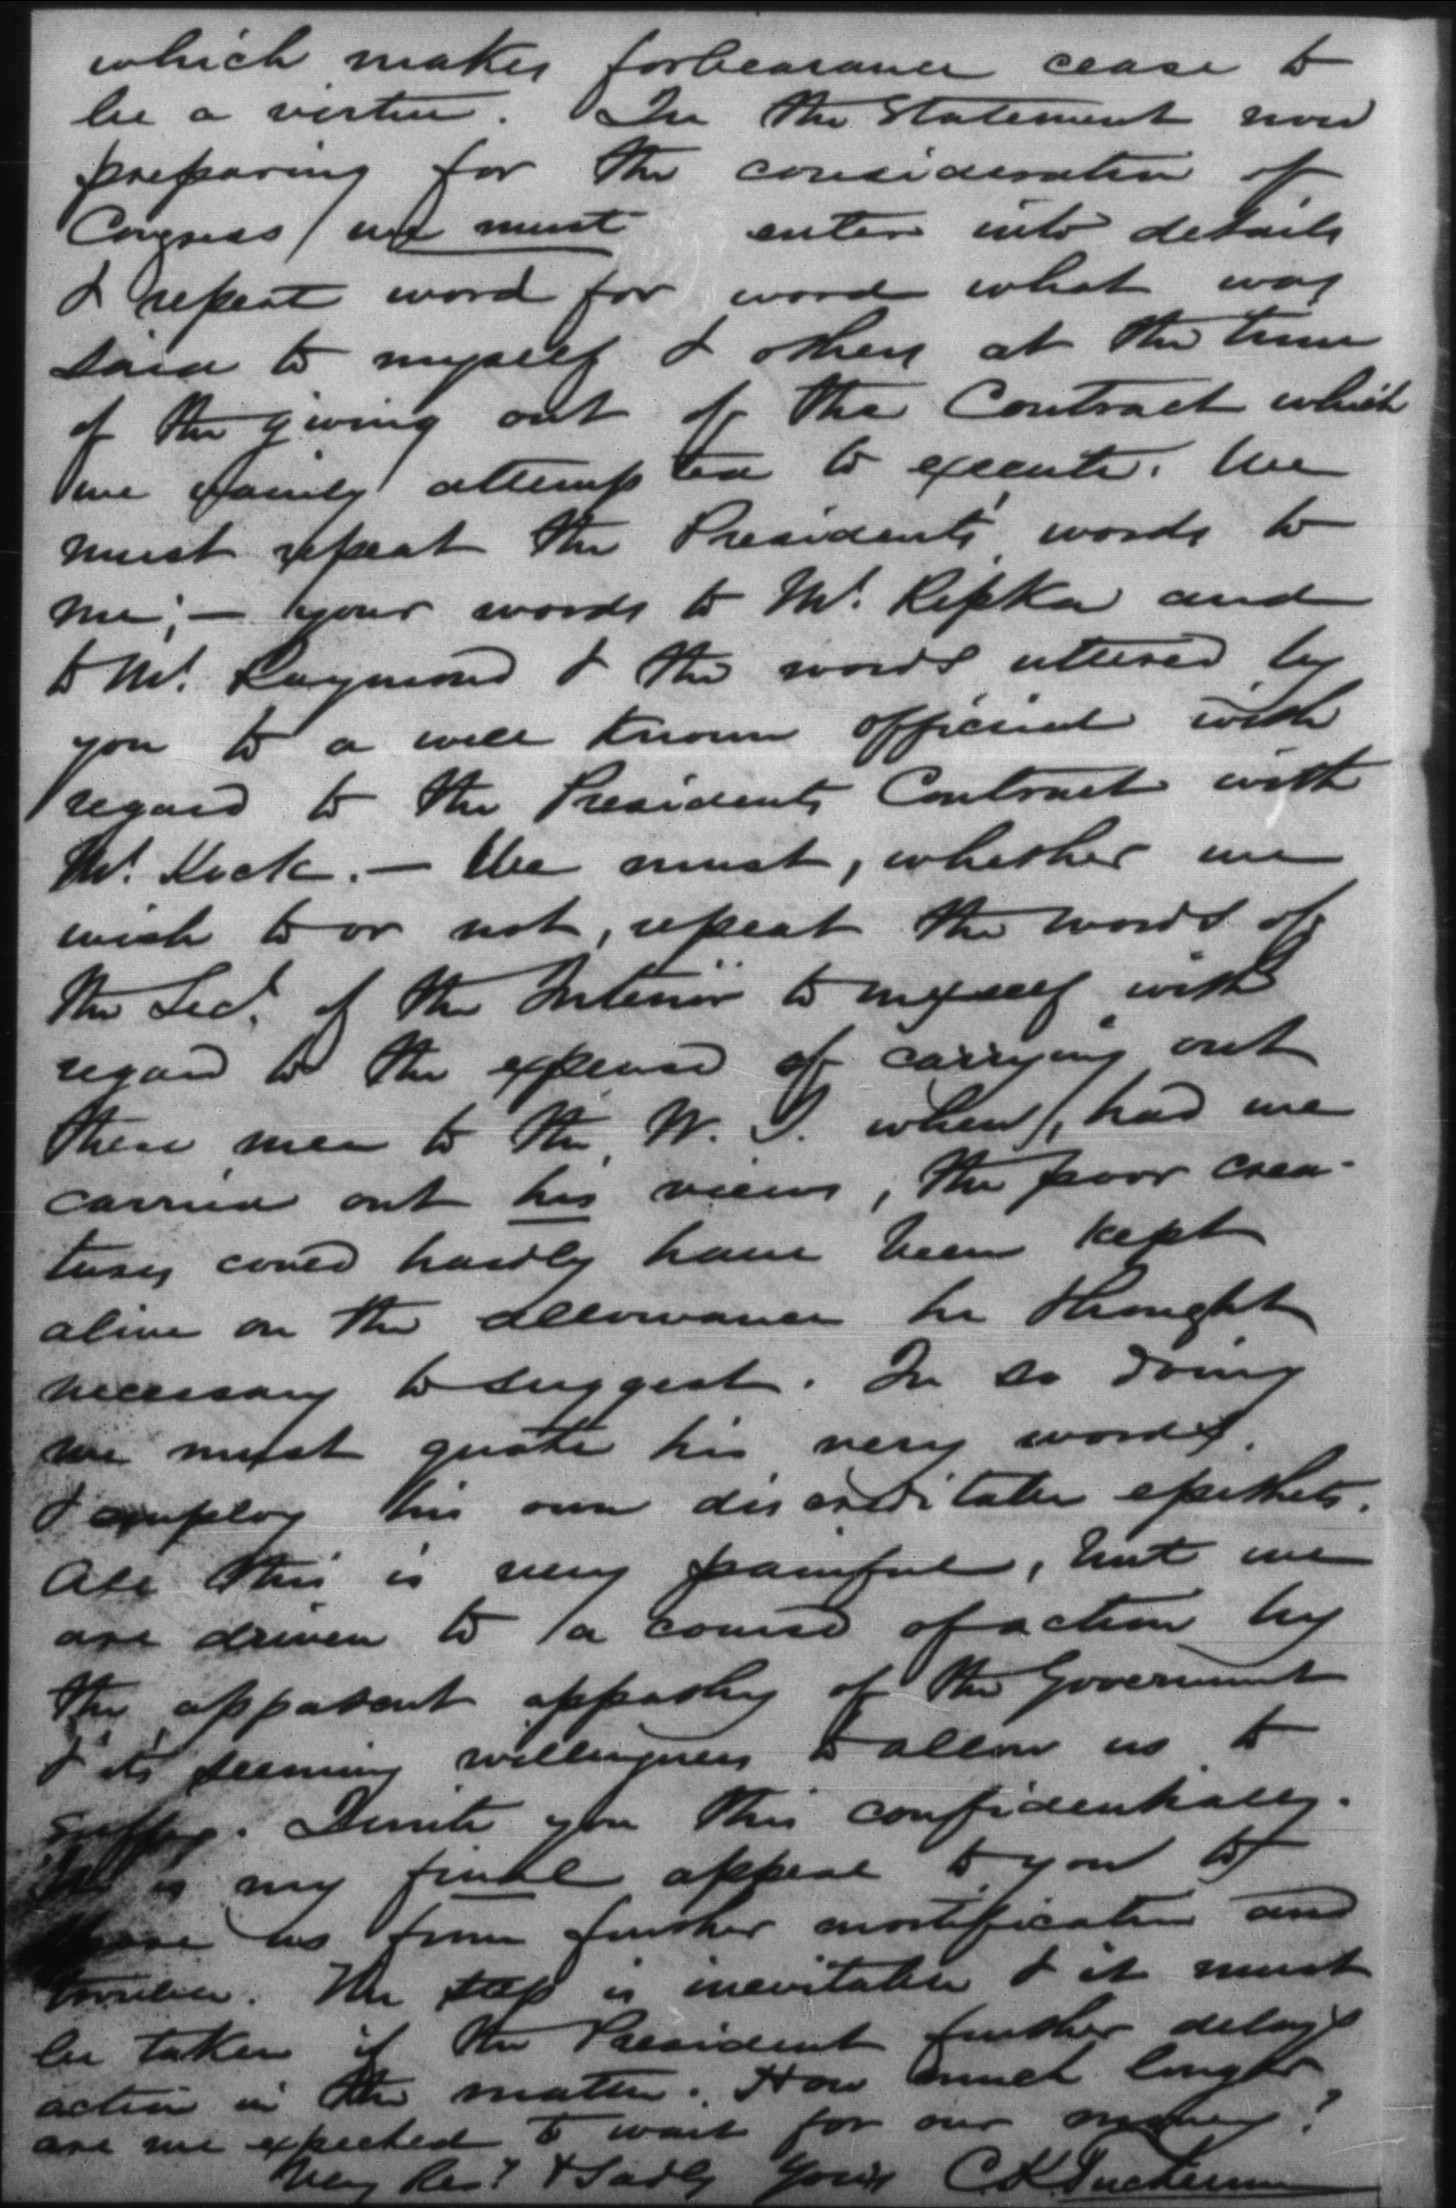 which makes forbearance cease to
be a virtue. In the Statement now
preparing for the consideration of
Congress / we must enter into details
& repeat word for word what was
said to myself & others at the time
of the giving out of the Contract which
we vainly attempted to execute. We
must repeat the Presidents' words to
me; — your words to Mr. Ripka and
to Mr. Raymond & the words uttered by
you to a well known official with
regard to the Presidents Contract with
Mr. Kock. — We must, whether we
wish to or not, repeat the words of
the Secy. of the Interior to myself with
regard to the expense of carrying out
these men to the W. I. when, had we
carried out his views, the poor crea-
tures could hardly have been kept
alive on the allowance he thought
necessary to suggest. In so doing
we must quote his very words,
& employ his own discreditable epithets.
All this is very painful, but we
are driven to a course of action by
the apparent appathy of the Government
& its seeming willingness to allow us to
suffer. I write you this confidentially.
It is my final appeal to you to
save us from further mortification and
trouble. The step is inevitable & it must
be taken if the President further delays
action in the matter. How much longer
are we expected to wait for our money?
Very Resy & Sadly Yours C K Tuckerman